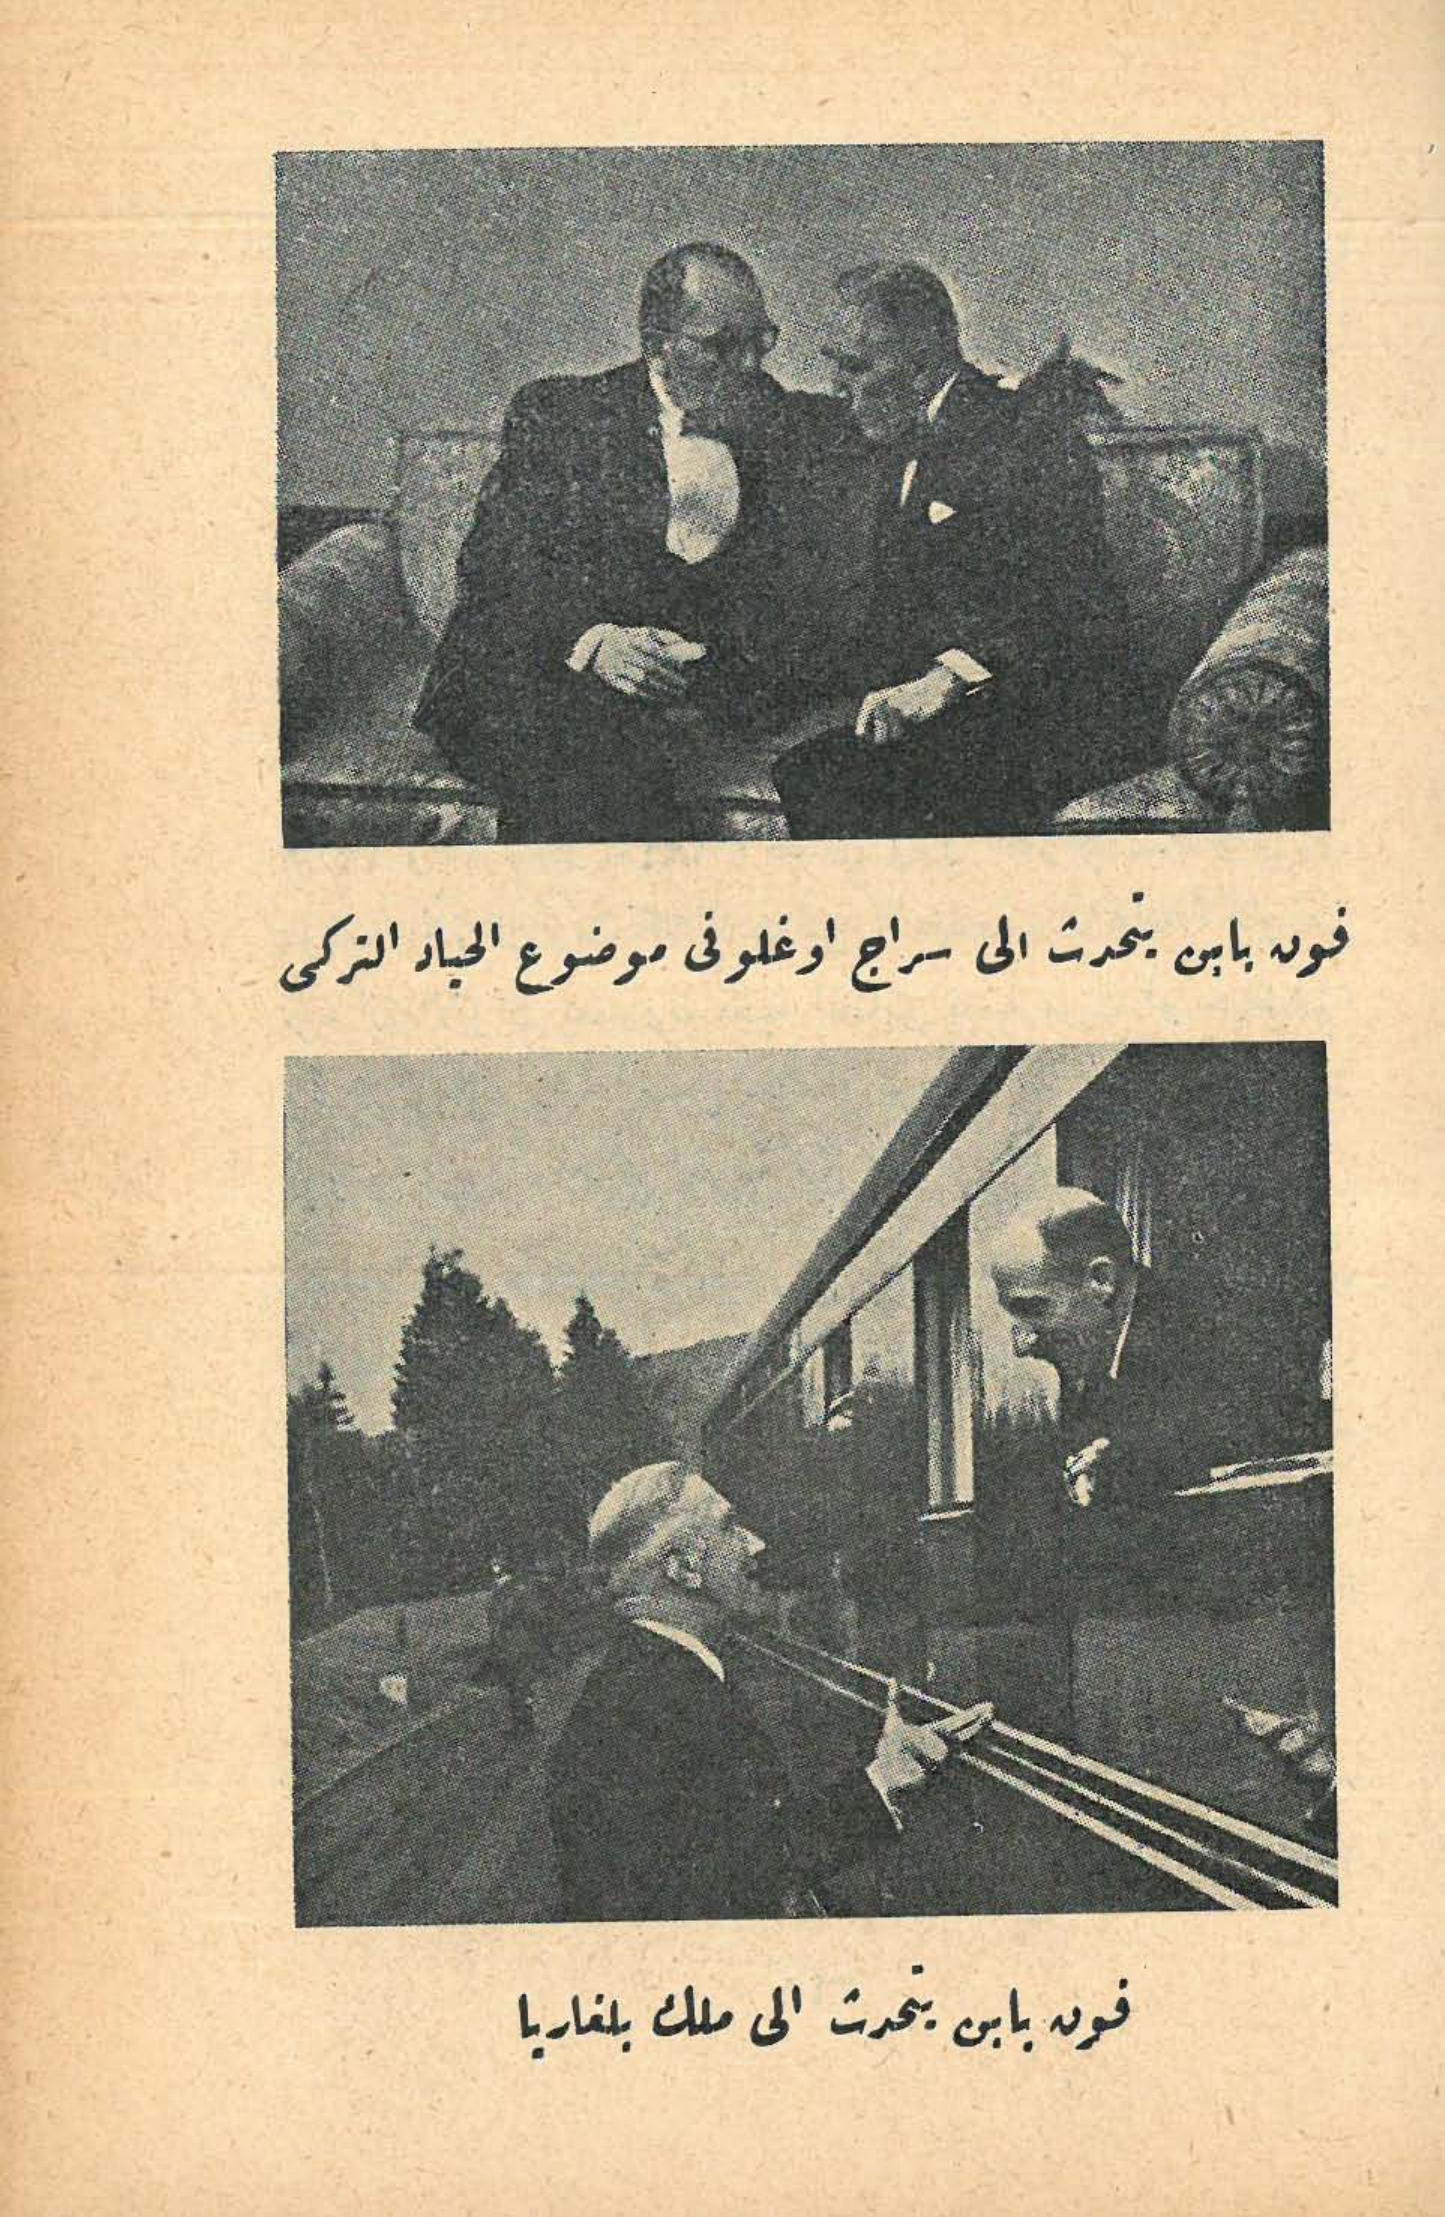 فون بابن يتحدث الى سراج اوغلو فى موضوع الحياد التركى
فون بابن يتحدث الى ملك بلغاريا